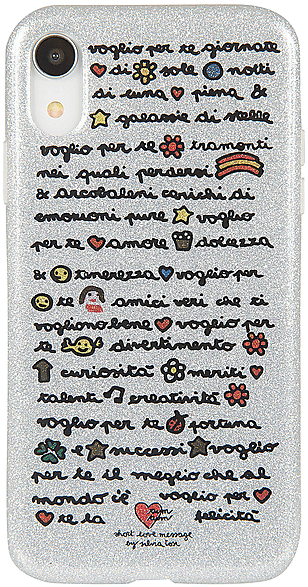 voglio per te giornate
di sole notti
di luna piena &
galassie di stelle
voglio per te tramonti
nei quali perdersi
& arcobaleni carichi di
emozioni pure voglio
per te amore dolcezza
& tenerezza voglio per
te amici veri che ti
vogliono bene voglio per
te divertimento
curiosità meriti
talenti creatività
voglio per te fortuna
e successi voglio
per te il meglio che al
mondo c'è voglio per
te la felicità
short love message
by silvia tosi